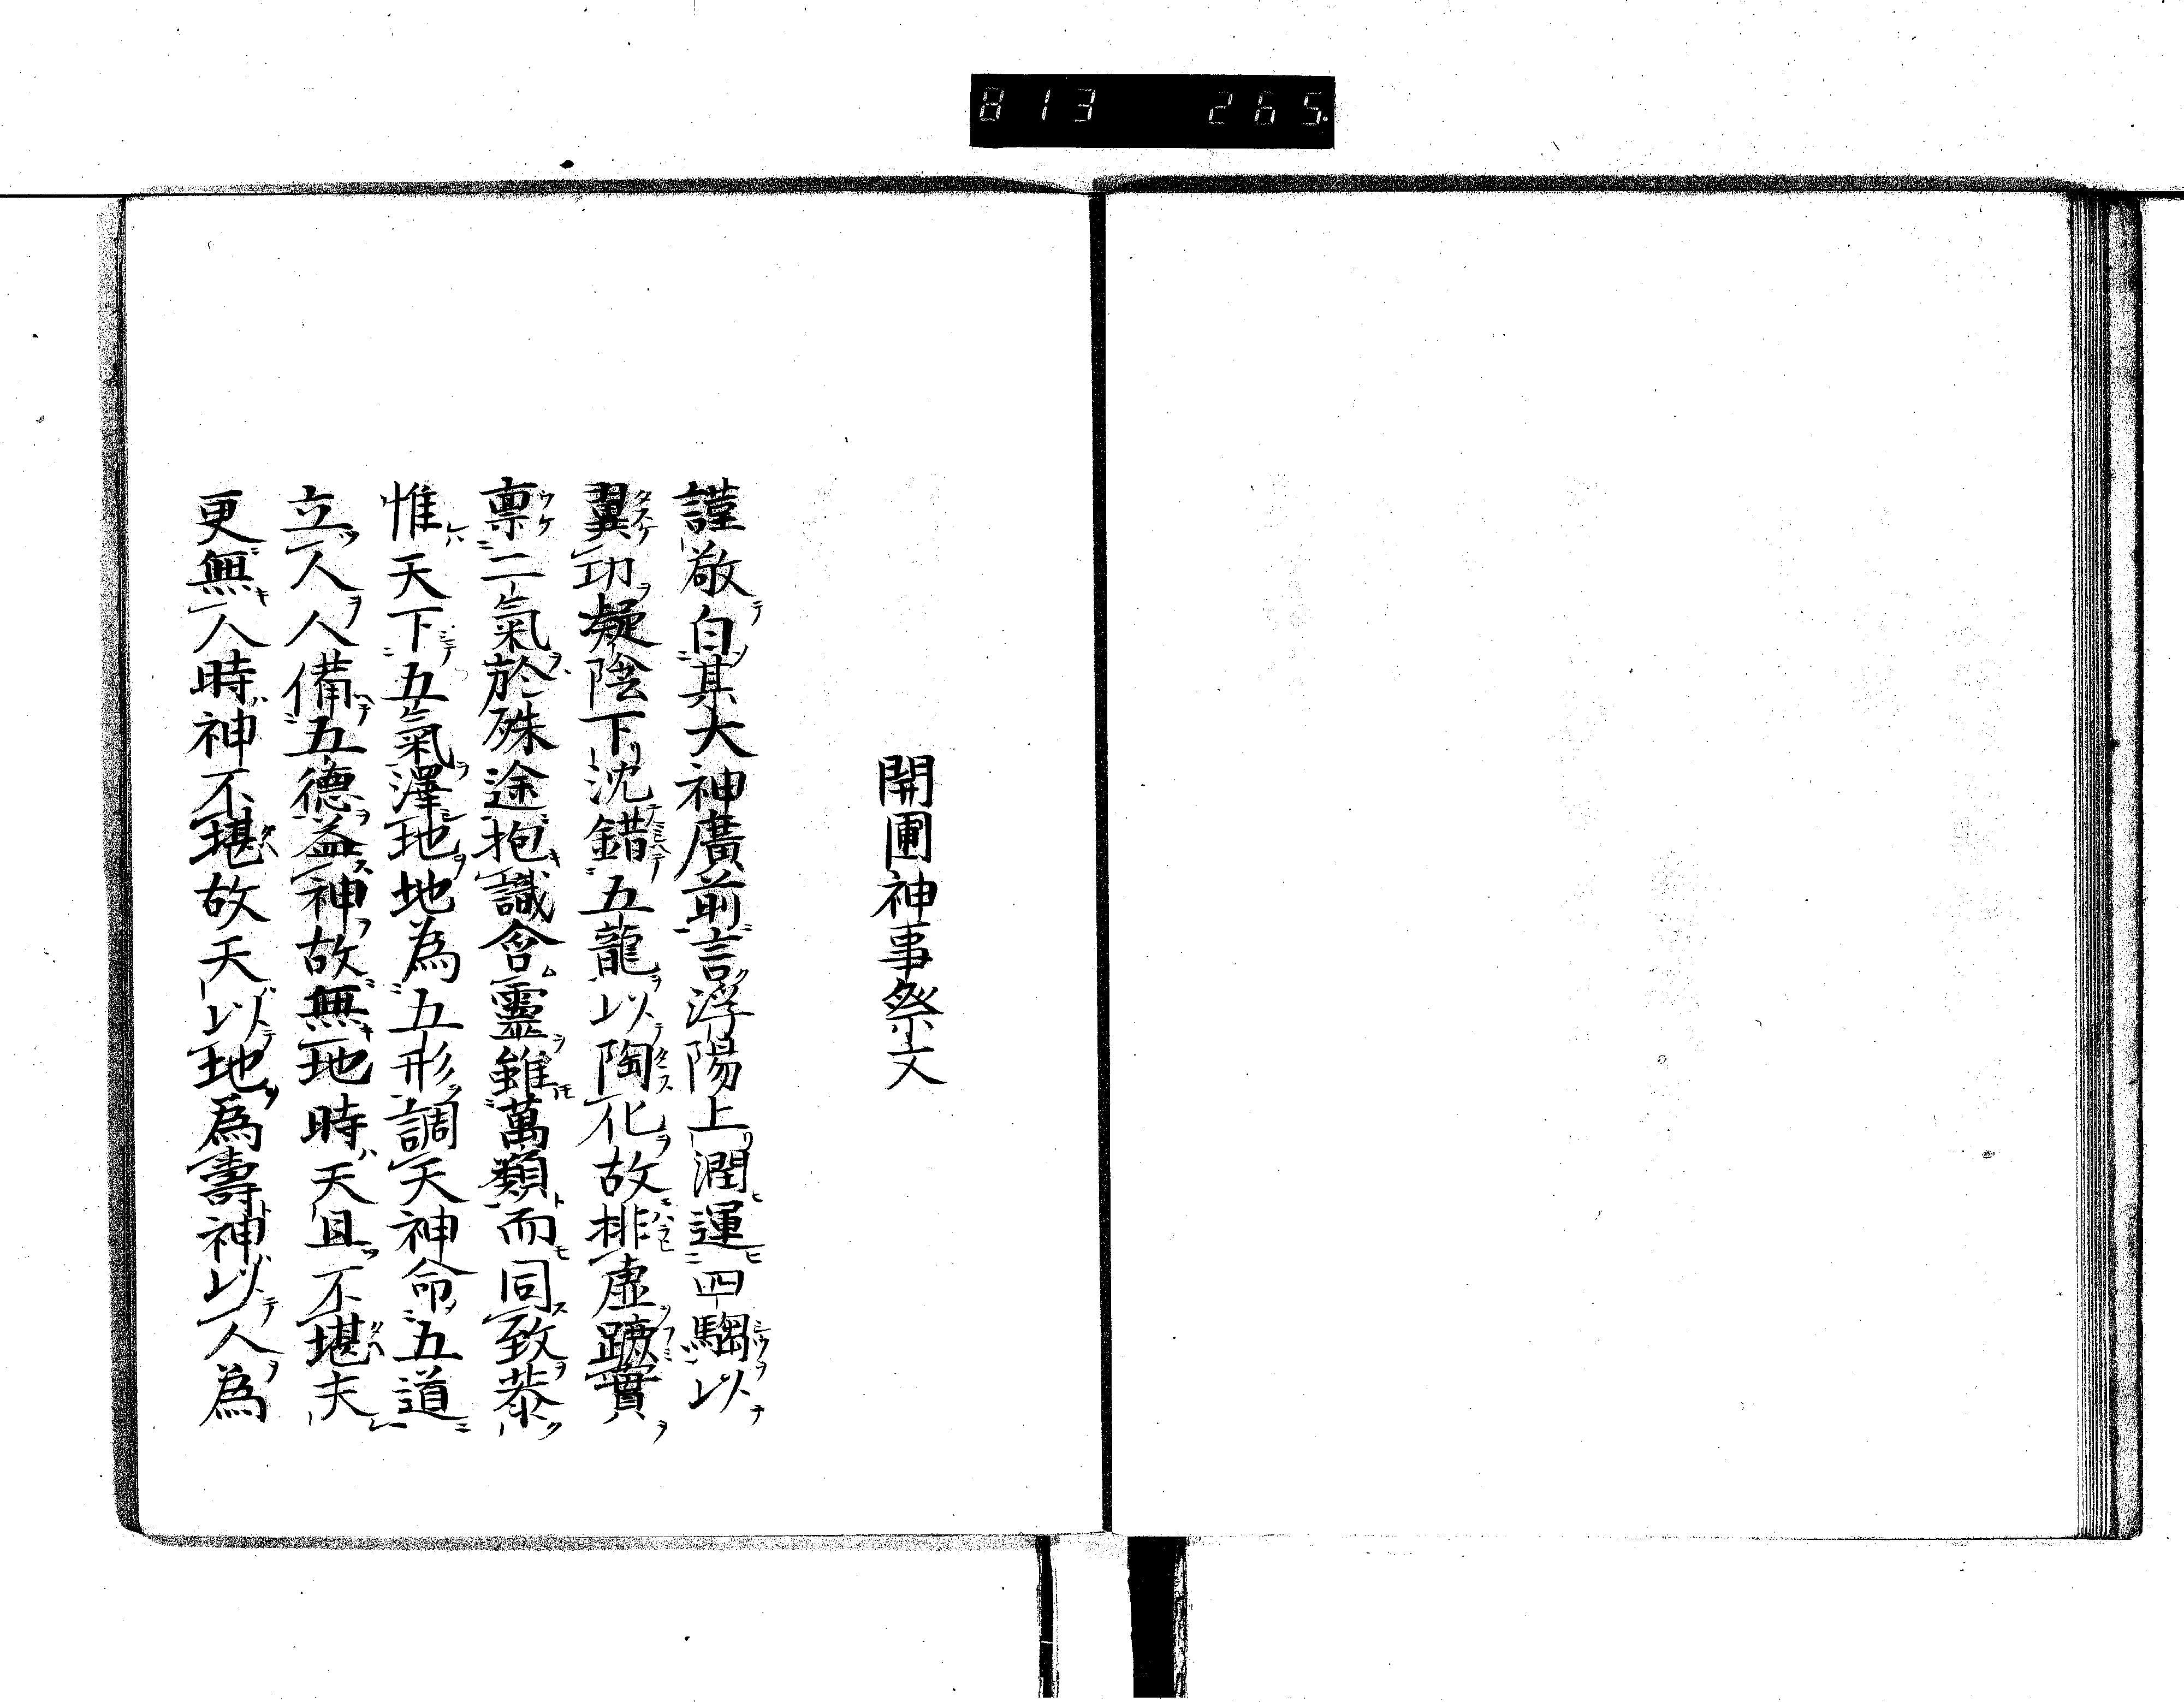 813 265
開圃神事祭文
謹敬白某大神廣前言浮陽上潤運四騶以
翼功凝陰下沈錯五龍以陶化故排虚蹠實
禀二氣於殊途抱識含靈雖萬類而同致恭
惟天下五氣澤地地為五形調天神命五道
立人人備五德益神故無地時天且不堪夫
更無人時神不堪故天以地為壽神以人為